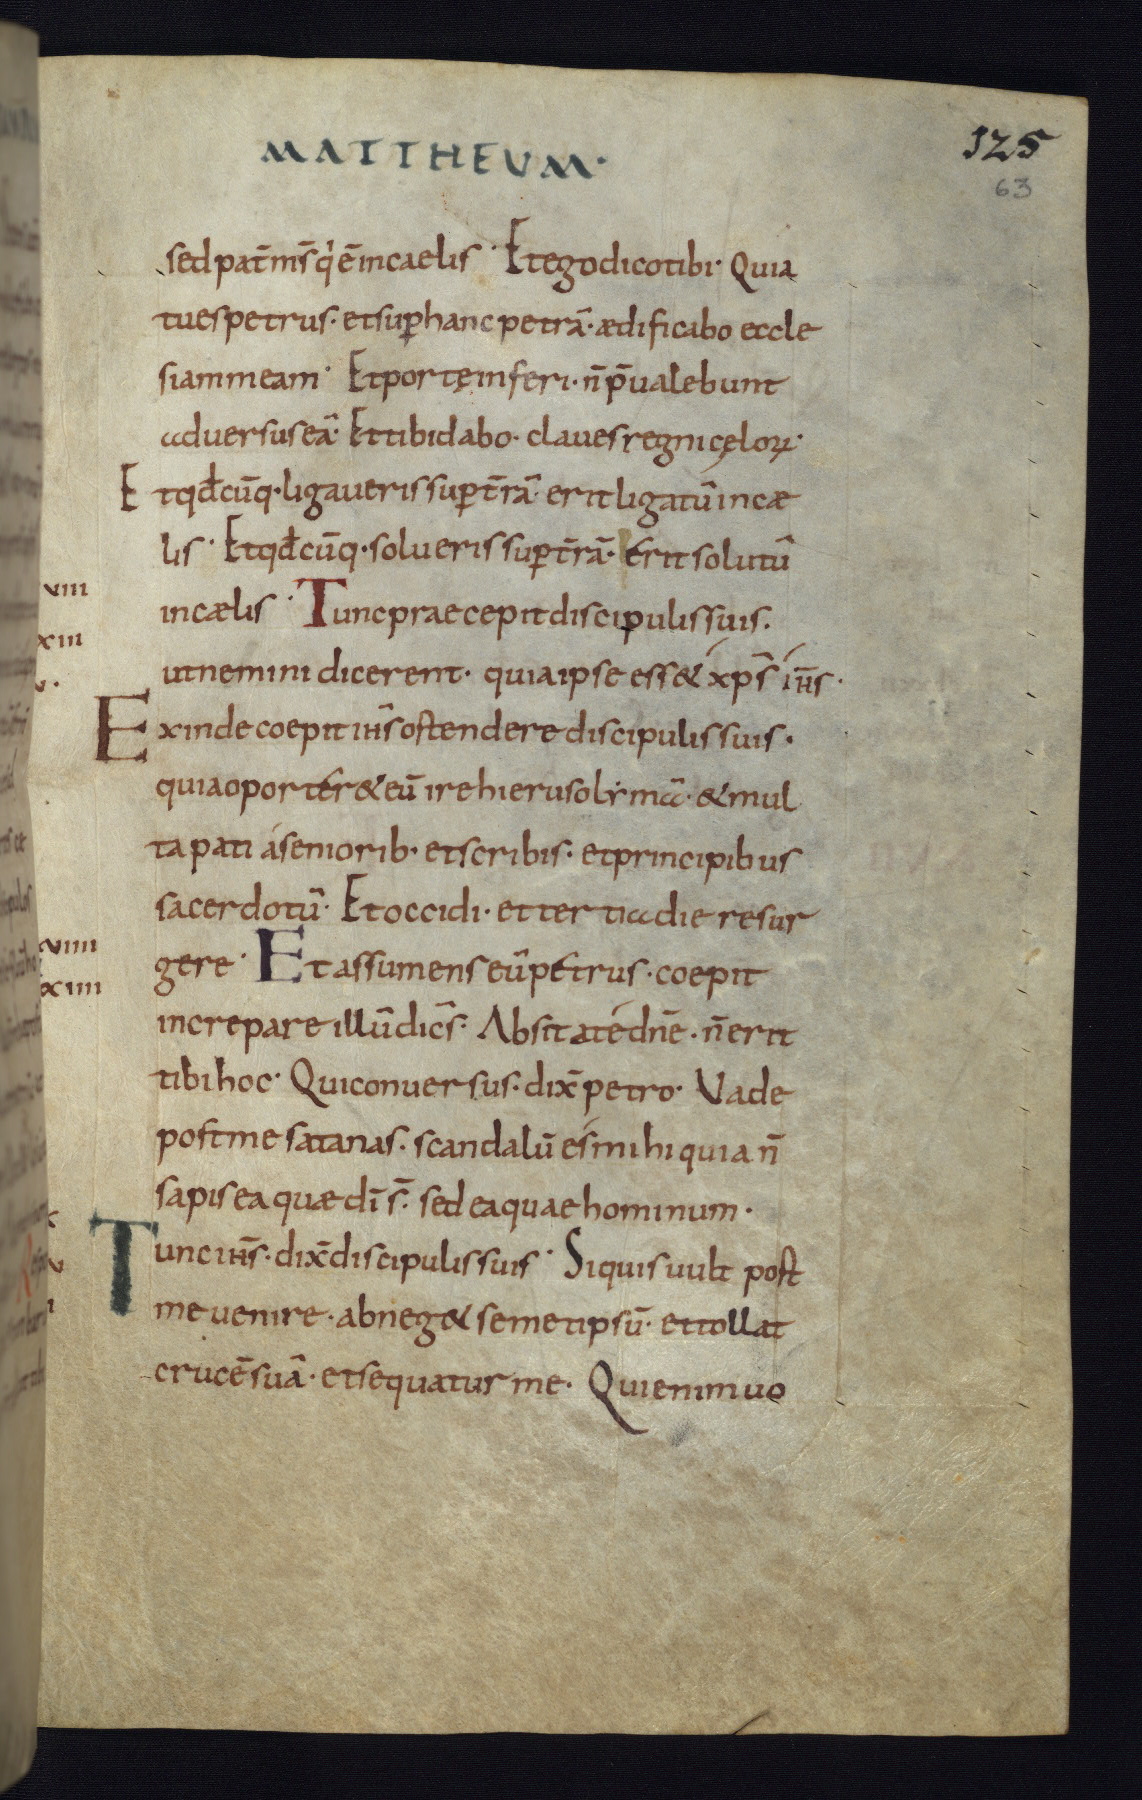 MATTHEUM·
125
63
sed pat̄ ms̄ q̇ ē in caelis· Et ego dico tibi· Quia
tu es petrus· et sup̄ hanc petrā· ædificabo eccle
siam meam· Et portę inferi· n̄ p̄ualebunt
aduersus eā· Et tibi dabo· claues regni cęloꝝ·
Et qđcūq· ligaueris sup̄ t̄rā· erit ligatū in cæ
lis· Et qđcūq· solueris sup̄ t̄rā· Erit solutū
viii
in cælis· Tunc praecepit discipulis suis·
xiii
ut nemini dicerent· quia ipse ess& xp̄s ih̄s·
v·
Exinde coepit ih̄s ostendere discipulis suis·
quia oporter& eū ire hierusolẏmā· & mul
ta pati á seniorib· et scribis· et principibus
sacerdotū· Et occidi· et tertia die resur
viiii
gere· Et assumens eū petrus· coepit
xiiii
increpare illū dic̄s· Absit a té dn̄e· n̄ erit
tibi hoc· Qui conuersus· dix̄ petro· Vade
post me satanas· scandalū és mihi quia n̄
sapis ea quæ dī s̄· sed ea quae hominum·
Tunc ih̄s· dix̄ discipulis suis· Si quis uult post
me uenire· abneg& semetipsū· et tollat
crucē suā· et sequatur me· Qui enim uo